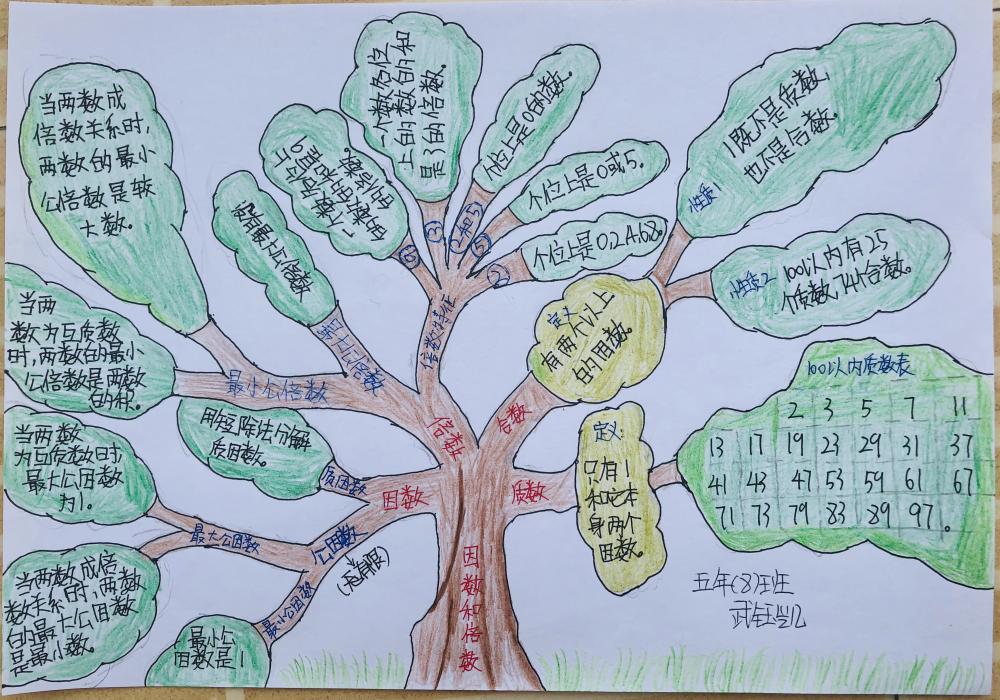 当两数成
倍数关系时,
两数的最小
公倍数是较
大数。
没有最大公倍数
9
一个数各位上
的数的和是
的倍数。
一个数各位
上的数的和
是3的倍数。
个位上是0的数。
个位上是0或5。
个位上是0.2.4.6.8。
⑨
③
2和5
⑤
②
性质1
1既不是质数,
也不是合数。
性质2
100以内有25
个质数,74个合数。
定义
有两个以上
的因数。
当两
数为互质数
时,两数的最小
公倍数是两数
的积。
最小公倍数
最大公倍数
倍数特征
倍数
合数
用短除法分解
质因数。
质因数
因数
质数
当两数
为互质数时,
最大公因数
为1。
最大公因数
公因数
(有限)
最小公因数
当两数成倍
数关系时,两数
的最大公因数
是最小数。
最小公
因数是1
因数和倍数
定义
只有1
和它本
身两个
因数。
100以内质数表
2 3 5 7 11
13 17 19 23 29 31 37
41 43 47 53 59 61 67
71 73 79 83 89 97。
五年(8)班
武钰